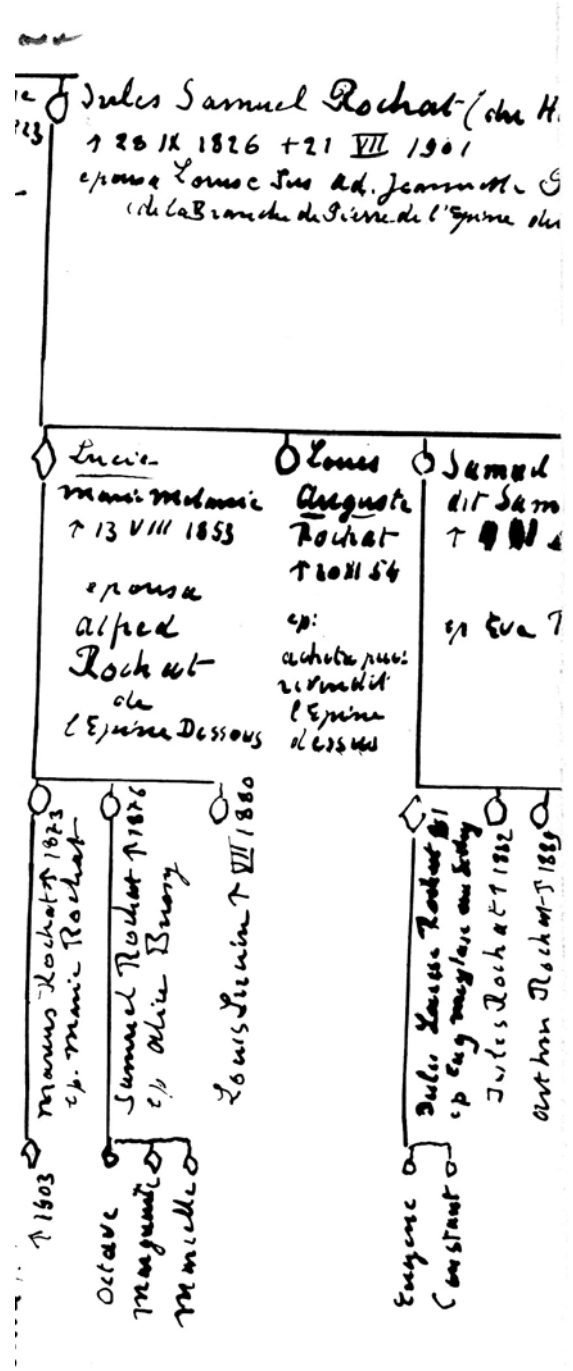 Jules Samuel Rochat (du H.
↑ 28 IX 1826 +21 VII 1901
epousa Louise Jeannette
(de la Branche de Pierre de l'Epine
23
Lucie
Marie Melanie
↑ 13 VIII 1853
epousa
Alfred
Rochat
de
l'Epine Dessous
Louis
Auguste
Rochat
↑ 20 XI 54
ep:
acheta puis
revendit
l'Epine
dessus
Samuel
dit Sam
↑
ep Eva
Marius Rochat ↑ 1873
ep. Marie Rochat
Samuel Rochat ↑ 1876
ep Alice
Louis Lucien ↑ VII 1880
Jules Rochat
ep Eug
Jules Rochat ↑ 1882
Arthur Rochat ↑
↑ 1903
Octave
Marguerite
Marielle
Eugene
Constant